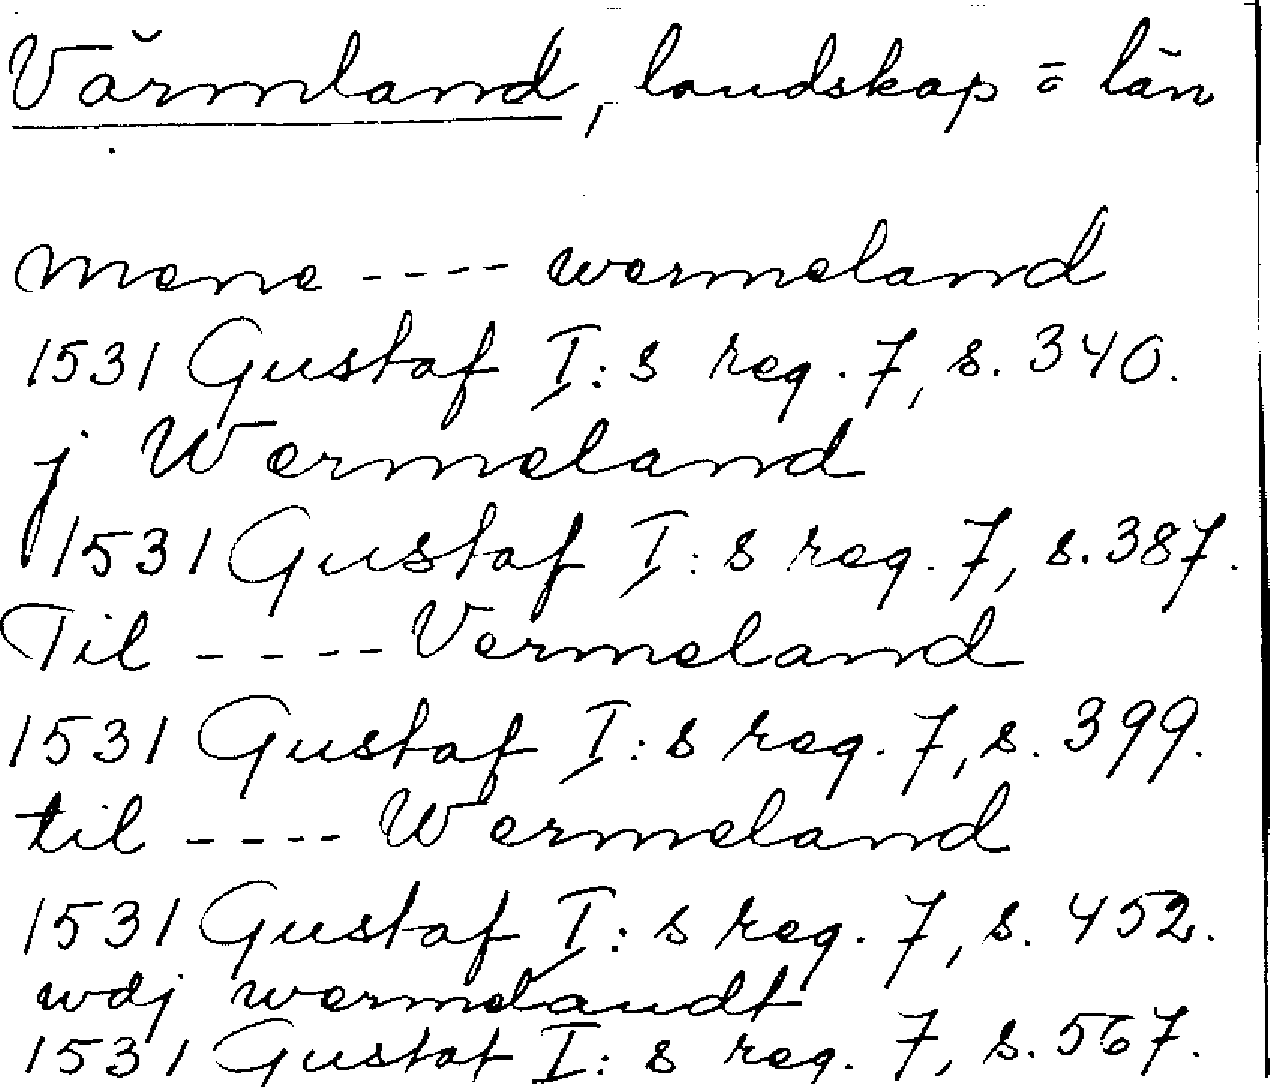 Värmland, landskap o län
mene ---- wermeland
1531 Gustaf I:s reg. 7, s. 340.
j Wermeland
1531 Gustaf I:s reg. 7, s. 387.
Til ---- Vermeland
1531 Gustaf I:s reg. 7, s. 399.
til ---- Wermeland
1531 Gustaf I:s reg. 7, s. 452.
wdj wermelandt
1531 Gustaf I:s reg. 7, s. 567.